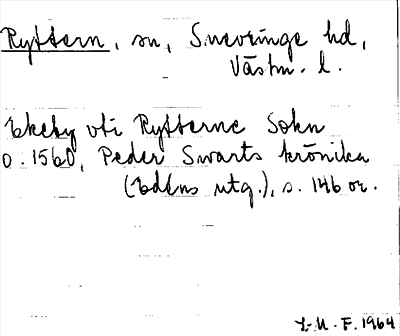 Ryttern, sn, Snevringe hd,
Västm. l.
Ekeby vti Rytterne Sokn
o. 1560, Peder Swarts krönika
(Edéns utg.), s. 146 or.
L. M. F. 1964